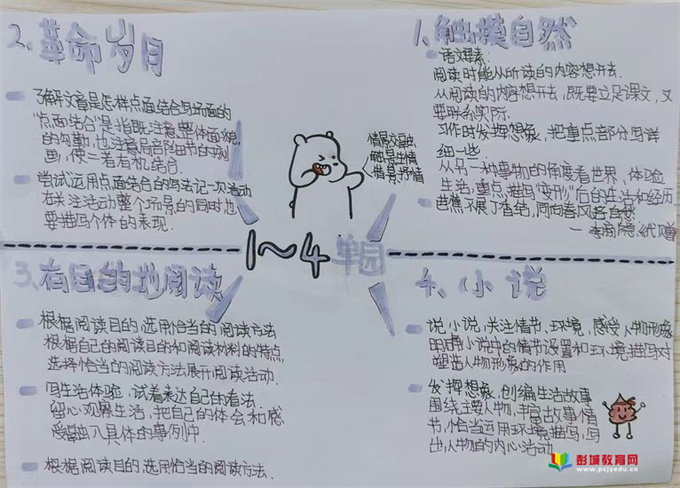 1、触摸自然
语文要素:
阅读时能从所读的内容想开去.
从阅读的内容想开去,既要立足课文,又
要联系实际.
习作时发挥想象,把重点部分写详
细一些
从另一种事物的角度看世界,体验
生活,重点描写"变形"后的生活和经历
芭蕉不展丁香结,同向春风各自愁
—李商隐《代赠
2、革命岁月
了解文章是怎样点面结合写场面的
"点面结合"是指既注意整体面貌
的勾勒,也注意局部细节的刻
画,使二者有机结合.
尝试运用点面结合的写法记一次活动
在关注活动整个场景的同时也
要描写个体的表现.
情景交融
触景生情
借景抒情
1~4单园
3、有目的地阅读
根据阅读目的选用恰当的阅读方法
根据自己的阅读目的和阅读材料的特点,
选择恰当的阅读方法展开阅读活动.
写生活体验,试着表达自己的看法
留心观察生活,把自己的体会和感
受融入具体的事例中.
根据阅读目的选用恰当的阅读方法.
4、小说
说小说,关注情节、环境,感受人物形象
明确小说中的情节设置和环境描写对
塑造人物形象的作用
发挥想象,创编生活故事
围绕主要人物,丰富故事情
节,恰当运用环境描写,写
出人物的内心活动
彭城教育网
www.pcjyedu.cn